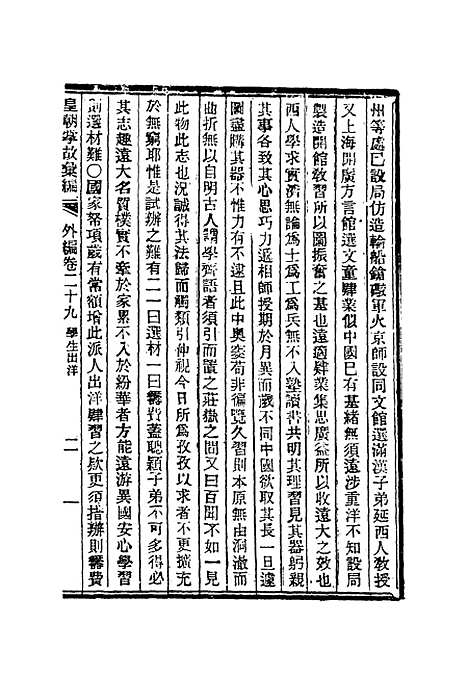 州等處已設局仿造輪船鎗礮軍火京師設同文館選滿漢子弟延西人敎授
又上海開廣方言館選文童肄業似中國已有基緒無須遠涉重洋不知設局
製造開館敎習所以圖振奮之基也遠適肄業集思廣益所以收遠大之效也
西人學求實濟無論爲士爲工爲兵無不入塾讀書共明其理習見其器躬親
其事各致其心思巧力遞相師授期於月異而歲不同中國欲取其長一旦遽
圖盡購其器不惟力有不逮且此中奥窔苟非徧覽久習則本原無由洞澈而
曲折無以自明古人謂學齊語者須引而置之莊嶽之間又曰百聞不如一見
此物此志也況誠得其法歸而觸類引伸視今日所爲孜孜以求者不更擴充
於無窮耶惟是試辦之難有二一曰選材一曰籌費蓋聰穎子弟不可多得必
其志趣遠大名質樸實不牽於家累不入於紛華者方能遠游異國安心學習
則選材難〇國家帑項歲有常額增此派人出洋肄習之欵更須措辦則籌費
皇朝掌故彙編 外編卷二十九 學生出洋 二